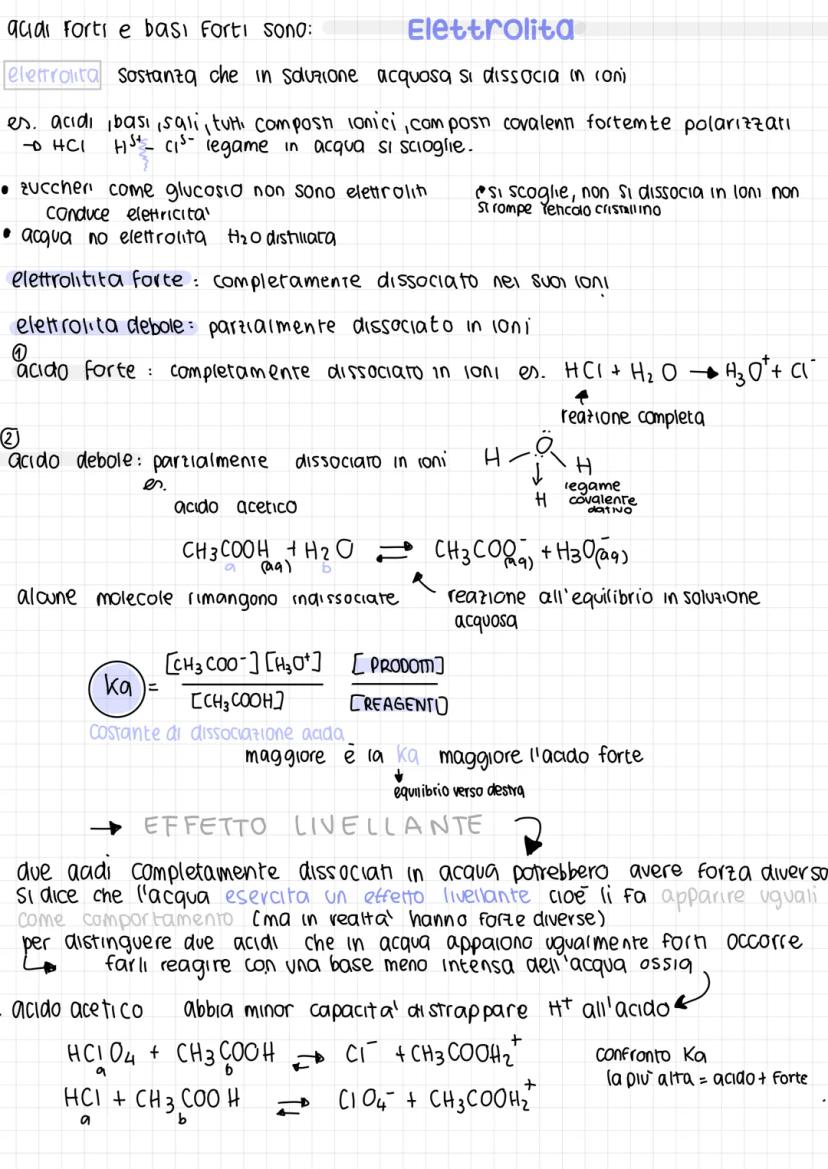 acidi forti e basi forti sono: Elettrolita
elettrolita sostanza che in soluzione acquosa si dissocia in ioni
es. acidi, basi, sali, tutti composti ionici, composti covalenti fortemte polarizzati
→ HCl H^δ+ – Cl^δ- legame in acqua si scioglie.
• zuccheri come glucosio non sono elettroliti
conduce elettricita'
• si scoglie, non si dissocia in ioni non
si rompe reticolo cristallino
• acqua no elettrolita H2O distillata
elettrolitita forte: completamente dissociato nei suoi ioni
elettrolita debole: parzialmente dissociato in ioni
①
acido forte: completamente dissociato in ioni es. HCl + H2O → H3O^+ + Cl^-
reazione completa
②
acido debole: parzialmente dissociato in ioni
H O H
H
legame
covalente
dativo
es.
acido acetico
CH3COOH (aq) + H2O ⇌ CH3COO^-(aq) + H3O^-(aq)
a b
alcune molecole rimangono indissociate
reazione all'equilibrio in soluzione
acquosa
Ka = [CH3COO^-][H3O^+] [PRODOTTI]
[CH3COOH] [REAGENTI]
costante di dissociazione acida
maggiore è la Ka maggiore l'acido forte
equilibrio verso destra
→ EFFETTO LIVELLANTE
due acidi completamente dissociati in acqua potrebbero avere forza diverso
si dice che l'acqua esercita un effetto livellante cioè li fa apparire uguali
come comportamento (ma in realta' hanno forze diverse)
per distinguere due acidi che in acqua appaiono ugualmente forti occorre
farli reagire con una base meno intensa dell'acqua ossia
acido acetico abbia minor capacita' di strappare H+ all'acido
HClO4 + CH3COOH ⇌ Cl^- + CH3COOH2^+
a b
HCl + CH3COOH ⇌ ClO4^- + CH3COOH2^+
a b
confronto Ka
la più alta = acido + forte